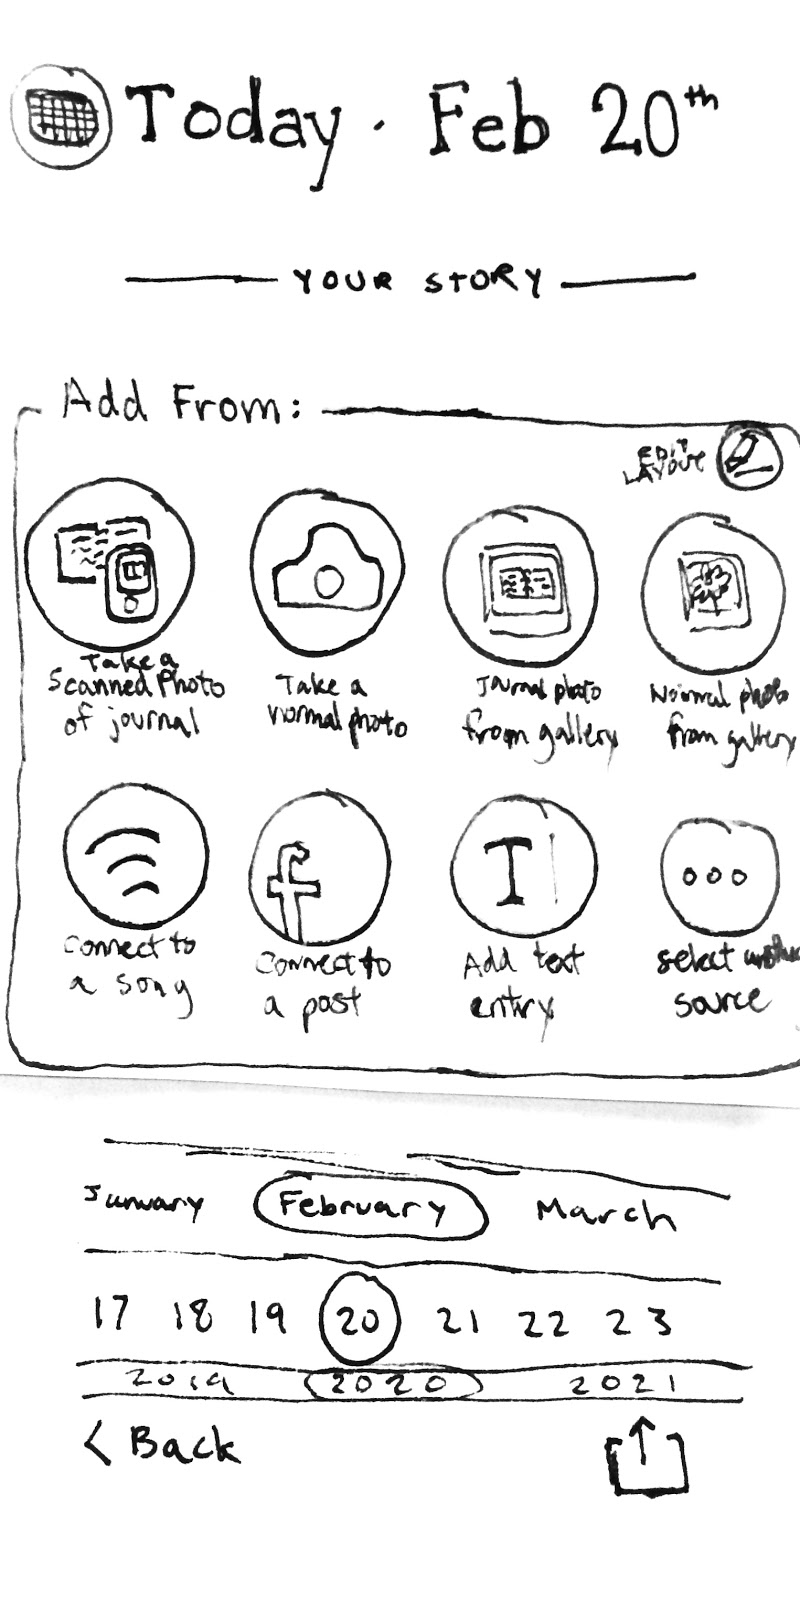 Today · Feb 20th
YOUR STORY
Add From:
EDIT
LAYOUT
Take a
Scanned Photo
of journal
Take a
normal photo
Journal photo
from gallery
Normal photo
from gallery
Connect to
a song
f
Connect to
a post
T
Add text
entry
select another
source
January February March
17 18 19 20 21 22 23
2019 2020 2021
< Back